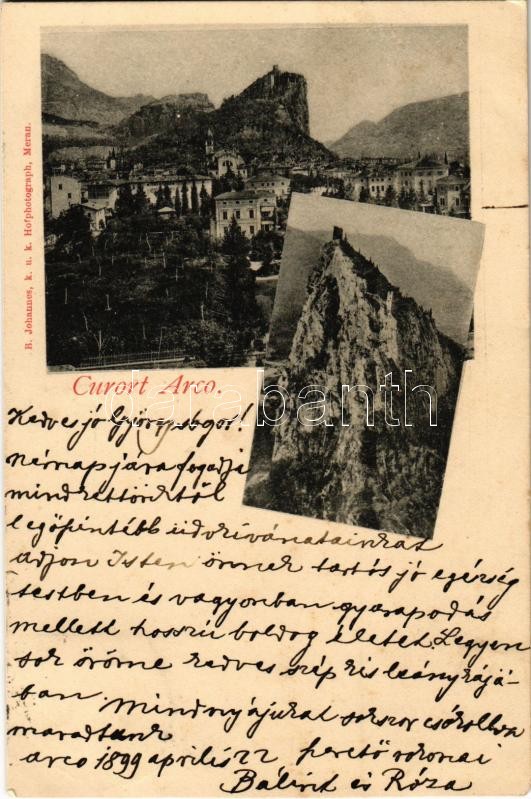 B. Johannes, k. u. k. Hofphotograph, Meran.
Curort Arco.
darabanth
Kedves jó György sógor!
névnapjára fogadja
mindkettőnktől
legőszintébb üdvkívánatainkat
adjon Isten önnek tartós jó egészség
testben és vagyonban gyarapodás
mellett hosszú boldog életet. Legyen
sok öröme kedves szép kis leánykájá-
ban. Mindnyájukat sokszor csókolva
maradtunk
arco 1899 április 22 szerető rokonai
Bálint és Róza